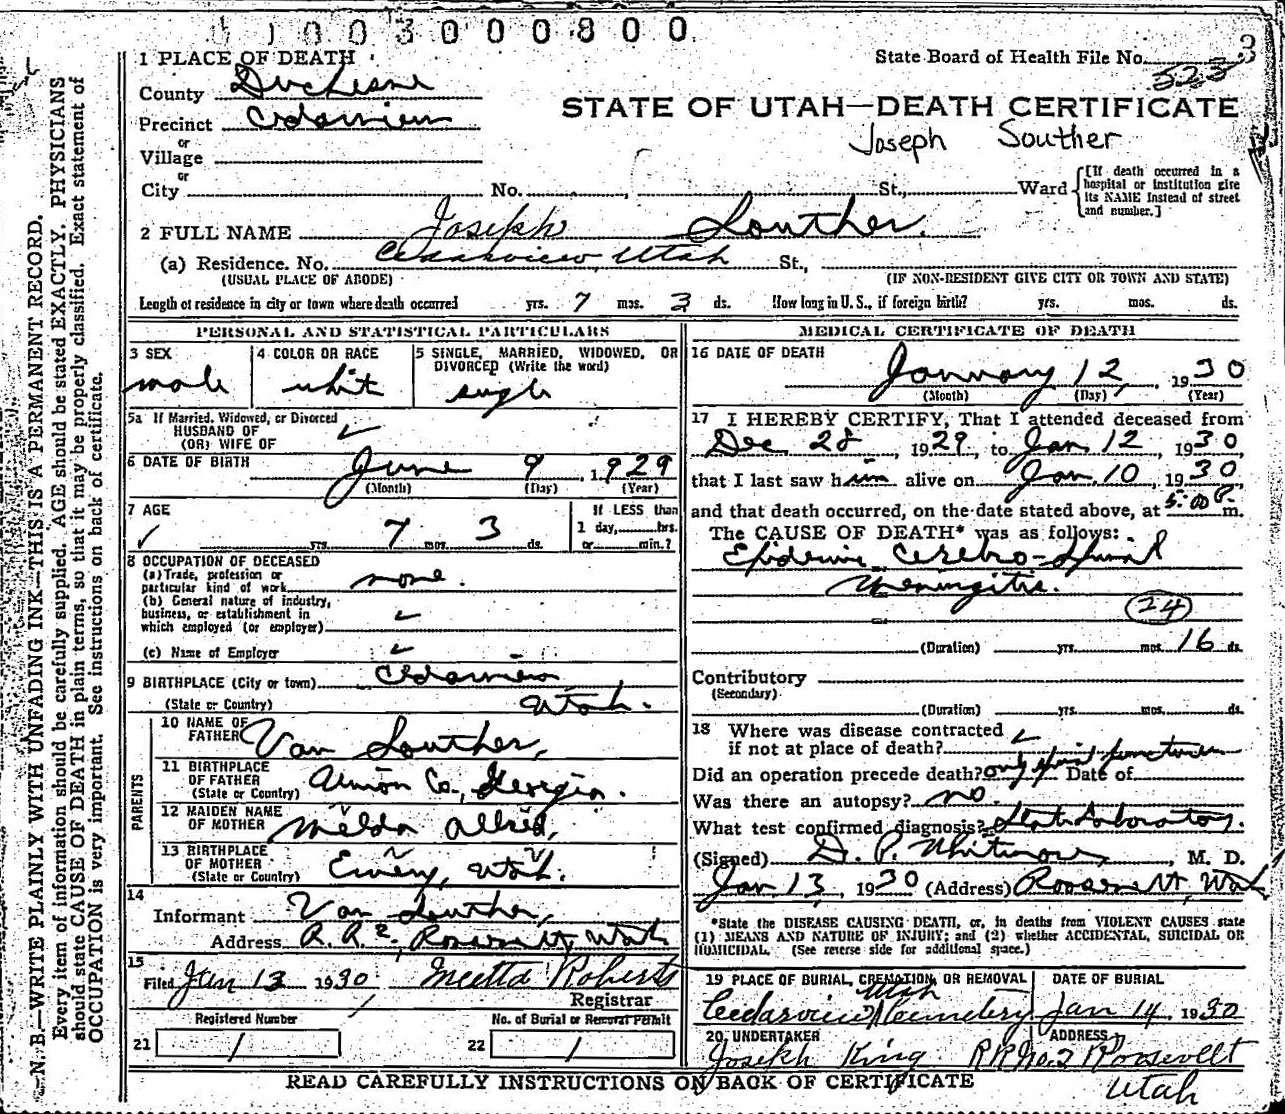 1003000800
3
1 PLACE OF DEATH
State Board of Health File No. 523
County Duchesne
STATE OF UTAH—DEATH CERTIFICATE
Precinct Cedarview
Joseph Souther
or
Village
or
City No. St., Ward
[If death occurred in a hospital or institution give its NAME instead of street and number.]
2 FULL NAME Joseph Souther.
(a) Residence. No. Cedarview, Utah St.,
(USUAL PLACE OF ABODE) (IF NON-RESIDENT GIVE CITY OR TOWN AND STATE)
Length of residence in city or town where death occurred yrs. 7 mos. 3 ds. How long in U. S., if foreign birth? yrs. mos. ds.
PERSONAL AND STATISTICAL PARTICULARS
3 SEX male
4 COLOR OR RACE whit
5 SINGLE, MARRIED, WIDOWED, OR DIVORCED (Write the word) single
5a If Married, Widowed, or Divorced
HUSBAND OF
(OR) WIFE OF
6 DATE OF BIRTH June 9, 1929
(Month) (Day) (Year)
7 AGE
yrs. 7 mos. 3 ds.
If LESS than
1 day, hrs.
or min.?
8 OCCUPATION OF DECEASED
(a) Trade, profession or
particular kind of work none.
(b) General nature of industry,
business, or establishment in
which employed (or employer)
(c) Name of Employer
9 BIRTHPLACE (City or town) Cedarview
(State or Country) Utah.
PARENTS
10 NAME OF FATHER Van Souther,
11 BIRTHPLACE OF FATHER (State or Country) Union Co., Georgia.
12 MAIDEN NAME OF MOTHER Melda Allred,
13 BIRTHPLACE OF MOTHER (State or Country) Emery, Utah.
14
Informant Van Souther,
Address R. R. 2, Roosevelt, Utah
15
Filed Jan 13 1930 Meetta Roberts
Registrar
Registered Number No. of Burial or Removal Permit
21 1 22 1
MEDICAL CERTIFICATE OF DEATH
16 DATE OF DEATH
January 12, 1930
(Month) (Day) (Year)
17 I HEREBY CERTIFY, That I attended deceased from
Dec 28, 1929, to Jan 12, 1930,
that I last saw him alive on Jan 10, 1930
and that death occurred, on the date stated above, at 5:00 P. m.
The CAUSE OF DEATH* was as follows:
Epidemic Cerebro-Spinal
Meningitis.
24
(Duration) yrs. mos. 16 ds.
Contributory
(Secondary)
(Duration) yrs. mos. ds.
18 Where was disease contracted
if not at place of death?
Did an operation precede death? only spinal puncture Date of
Was there an autopsy? no.
What test confirmed diagnosis? State Laboratory.
(Signed) D. P. Whitmore, M. D.
Jan 13, 1930 (Address) Roosevelt, Utah
*State the DISEASE CAUSING DEATH, or, in deaths from VIOLENT CAUSES state
(1) MEANS AND NATURE OF INJURY; and (2) whether ACCIDENTAL, SUICIDAL OR
HOMICIDAL. (See reverse side for additional space.)
19 PLACE OF BURIAL, CREMATION, OR REMOVAL DATE OF BURIAL
Utah
Cedarview Cemetery Jan 14, 1930
20 UNDERTAKER ADDRESS
Joseph King R R No. 2 Roosevelt
Utah
READ CAREFULLY INSTRUCTIONS ON BACK OF CERTIFICATE
N. B.—WRITE PLAINLY WITH UNFADING INK—THIS IS A PERMANENT RECORD.
Every item of information should be carefully supplied. AGE should be stated EXACTLY. PHYSICIANS
should state CAUSE OF DEATH in plain terms, so that it may be properly classified. Exact statement of
OCCUPATION is very important. See instructions on back of certificate.